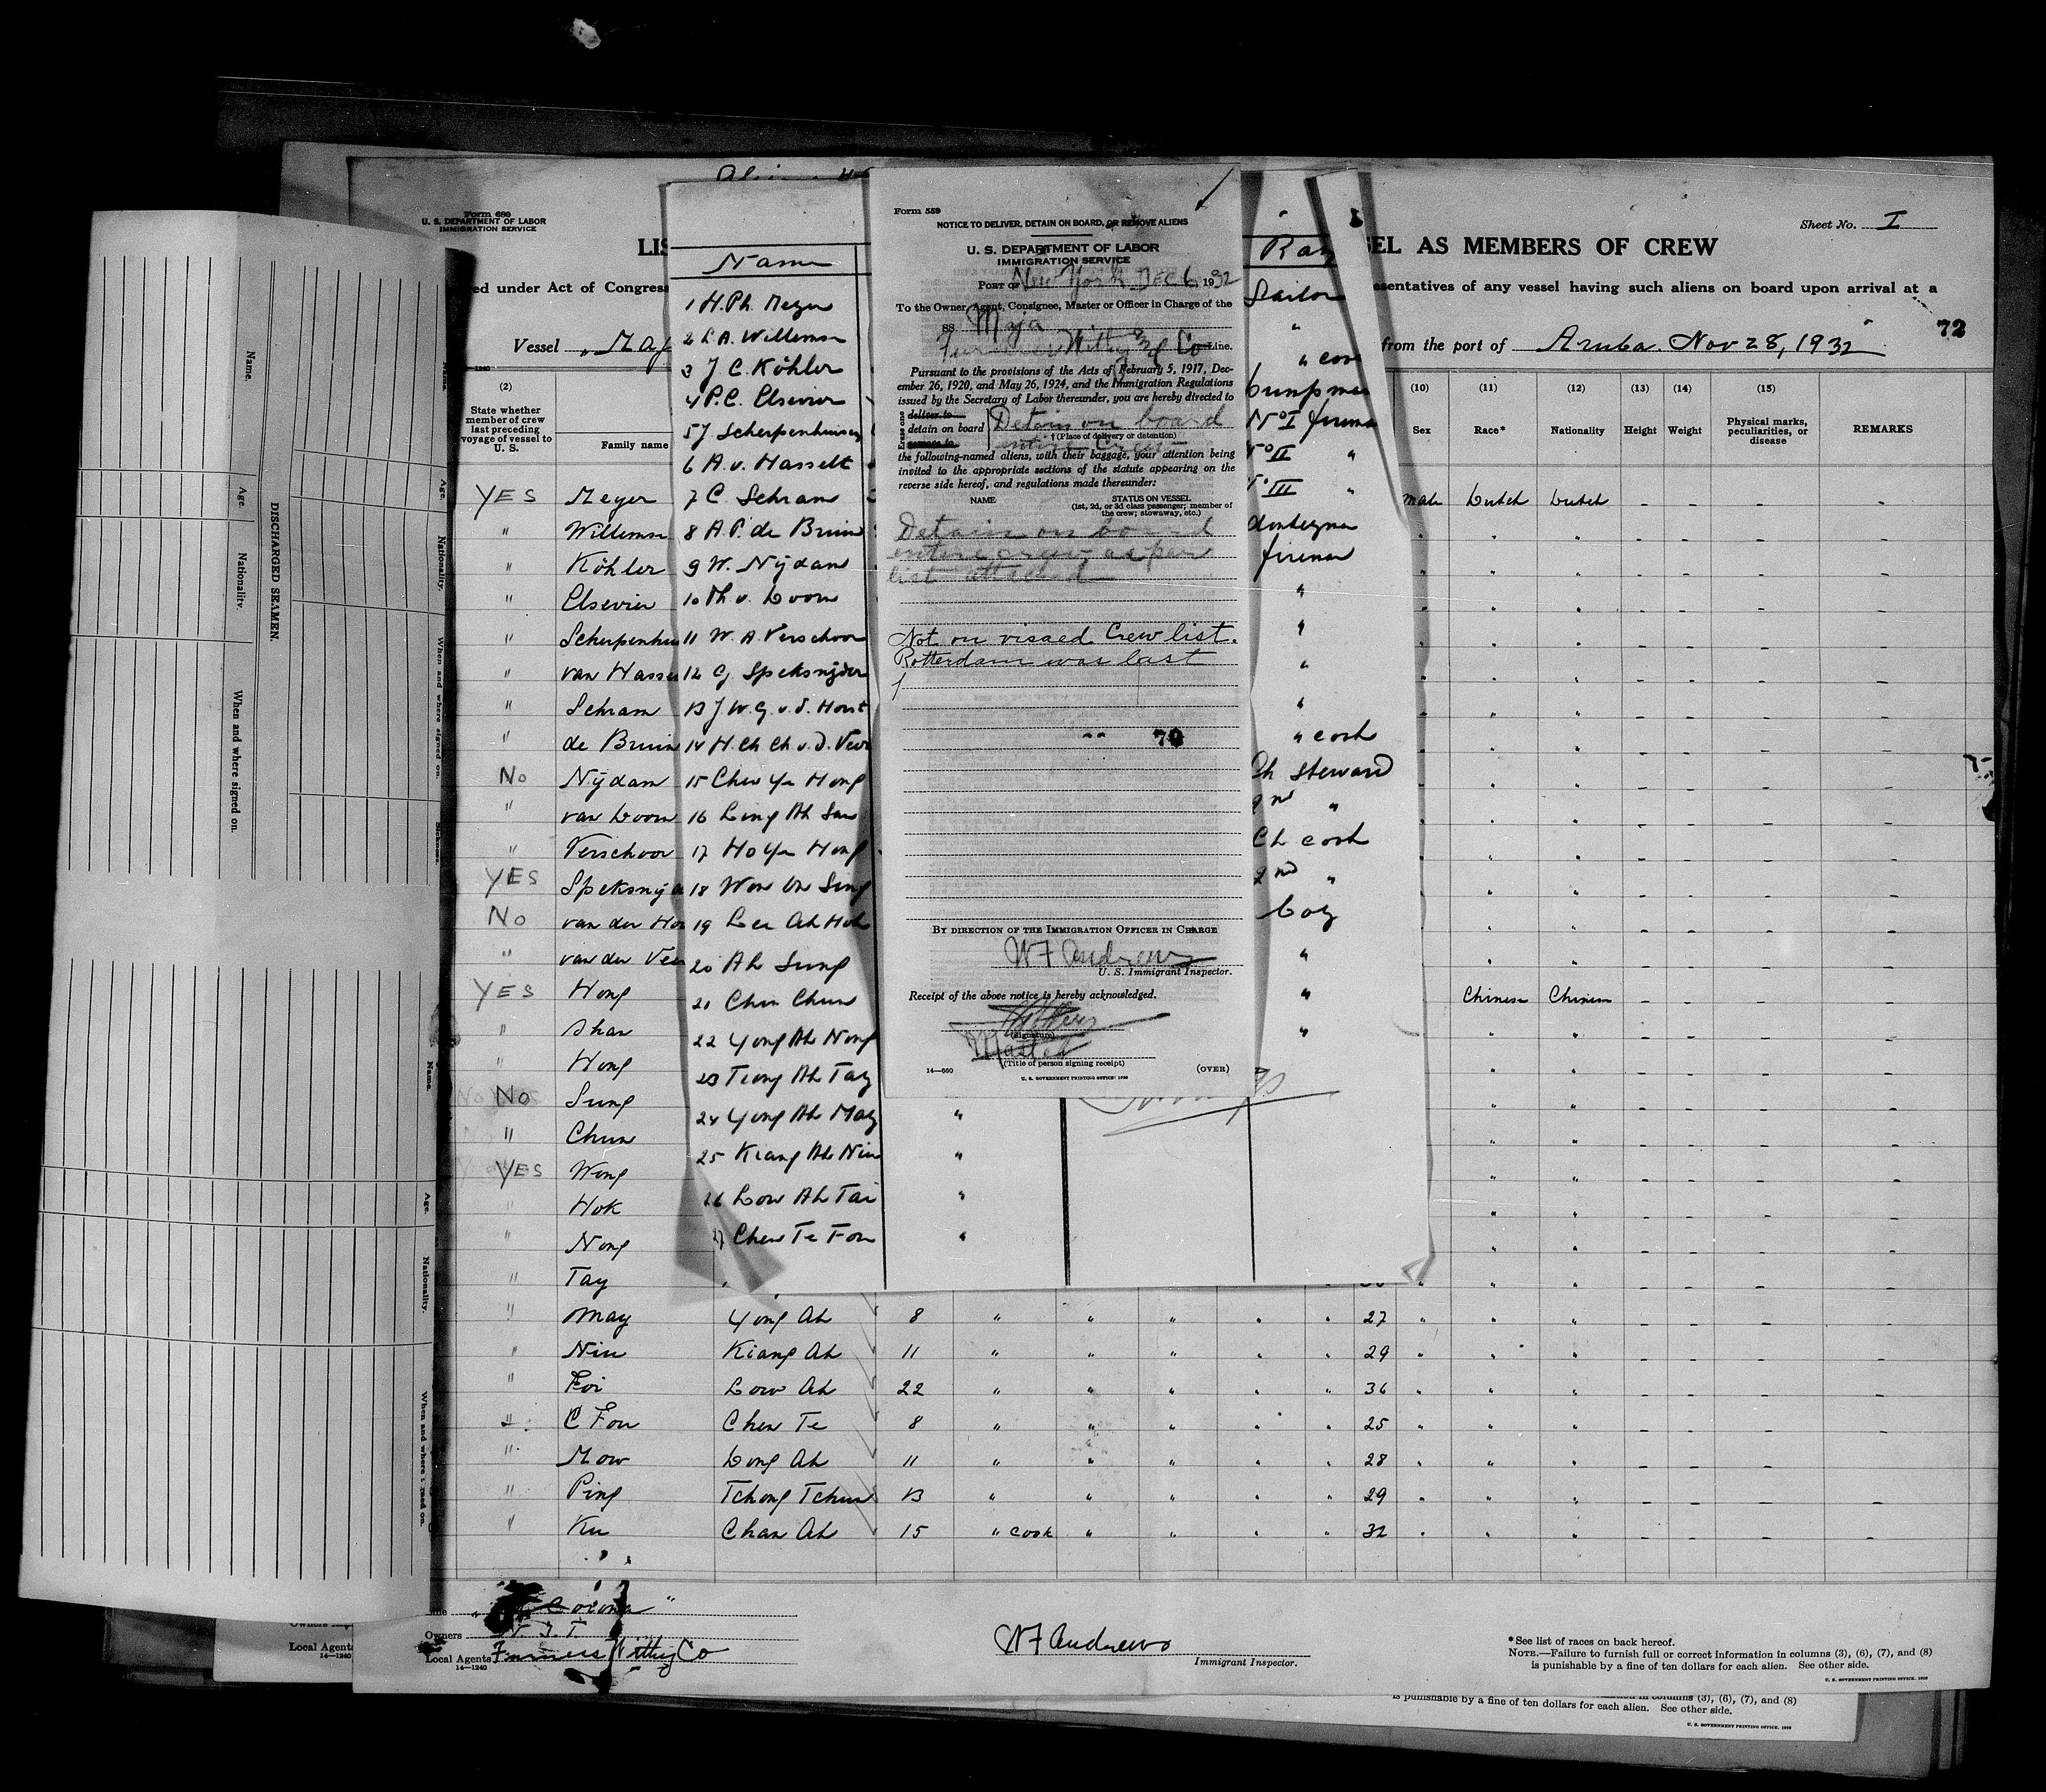 Form 680
U. S. DEPARTMENT OF LABOR
IMMIGRATION SERVICE
Sheet No. I
LIS
SEL AS MEMBERS OF CREW
ed under Act of Congress
esentatives of any vessel having such aliens on board upon arrival at a
Vessel
from the port of Aruba. Nov 28, 1932
72
(2)
State whether member of crew last preceding voyage of vessel to U. S.
Family name
(10) (11) (12) (13) (14) (15)
Sex Race* Nationality Height Weight Physical marks, peculiarities, or disease REMARKS
YES Meyer male Dutch Dutch
" Willemse
" Köhler
" Elsevier
" Scherpenhui
" van Hasse
" Schram
" de Bruin
No Nijdam
" van Doorn
" Verschoor
YES Speksnij
No van der Hor
" van der Veer
YES Hong Chinese Chinese
" Shan
" Hong
No Sung
" Chun
YES Wong
" Hok
" Nong
" Tay
" May Yong Ah 8 " " " " " 27
" Niu Kiang Ah 11 " " " " " 29
" Foi Low Ah 22 " " " " " 36
" C Fou Chen Te 8 " " " " " 25
" Mow Dong Ah 11 " " " " " 28
" Ping Tchong Tchun 13 " " " " " 29
" Ku Chan Ah 15 " cook " " " " 32
" Corona "
Owners N. I. T.
Local Agents Furness Withy Co
14—1240
W F Andrews
Immigrant Inspector.
*See list of races on back hereof.
NOTE.—Failure to furnish full or correct information in columns (3), (6), (7), and (8)
is punishable by a fine of ten dollars for each alien. See other side.
U. S. GOVERNMENT PRINTING OFFICE
is punishable by a fine of ten dollars for each alien. See other side.
U. S. GOVERNMENT PRINTING OFFICE
Local Agent
14—1240
Name
1 H. Ph. Meyer
2 L. A. Willemse
3 J C. Köhler
4 P. C. Elsevier
5 J Scherpenhuisen
6 A. v. Hasselt
7 C. Schram
8 A. P. de Bruin
9 W. Nijdam
10 Th v. Doorn
11 W. A. Verschoor
12 G Speksnijder
13 J W. G. v. d. Horst
14 H. Ch Ch v. d. Veer
15 Chew Ye Hong
16 Ling Ah San
17 Ho Ye Hong
18 Won On Sung
19 Lee Ah Hok
20 Ah Sung
21 Chen Chun
22 Yong Ah Nong
23 Tiong Ah Tay
24 Yong Ah May
25 Kiang Ah Niu
26 Low Ah Tai
27 Chen Te Fou
Sailor
"
pumpman
No I firema
No II "
No III "
donkeyman
fireman
"
"
"
"
" cook
Ch Steward
2nd "
Ch cook
2nd "
boy
"
"
"
Form 559
NOTICE TO DELIVER, DETAIN ON BOARD, OR REMOVE ALIENS
U. S. DEPARTMENT OF LABOR
IMMIGRATION SERVICE
PORT OF New York DEC 6, 1932
To the Owner, Agent, Consignee, Master or Officer in Charge of the
SS. Maja
Furness Withy & Co Line.
Pursuant to the provisions of the Acts of February 5, 1917, Dec-
ember 26, 1920, and May 26, 1924, and the Immigration Regulations
issued by the Secretary of Labor thereunder, you are hereby directed to
Erase one
deliver to
detain on board
remove to
Detain on board
† (Place of delivery or detention)
entire Crew
the following-named aliens, with their baggage, your attention being
invited to the appropriate sections of the statute appearing on the
reverse side hereof, and regulations made thereunder:
NAME STATUS ON VESSEL
(1st, 2d, or 3d class passenger; member of the crew; stowaway, etc.)
Detain on board
entire crew as per
list attached
Not on visaed Crew list.
Rotterdam was last
BY DIRECTION OF THE IMMIGRATION OFFICER IN CHARGE
W F Andrews
U. S. Immigrant Inspector.
Receipt of the above notice is hereby acknowledged.
(Signature)
Master
(Title of person signing receipt)
14—660
(OVER)
U. S. GOVERNMENT PRINTING OFFICE: 1930
DISCHARGED SEAMEN.
Name. Age. Nationality. When and where signed on.
Name. Age. Nationality. When and where signed on. Sickness.
Name. Age. Nationality. When and where signed on.